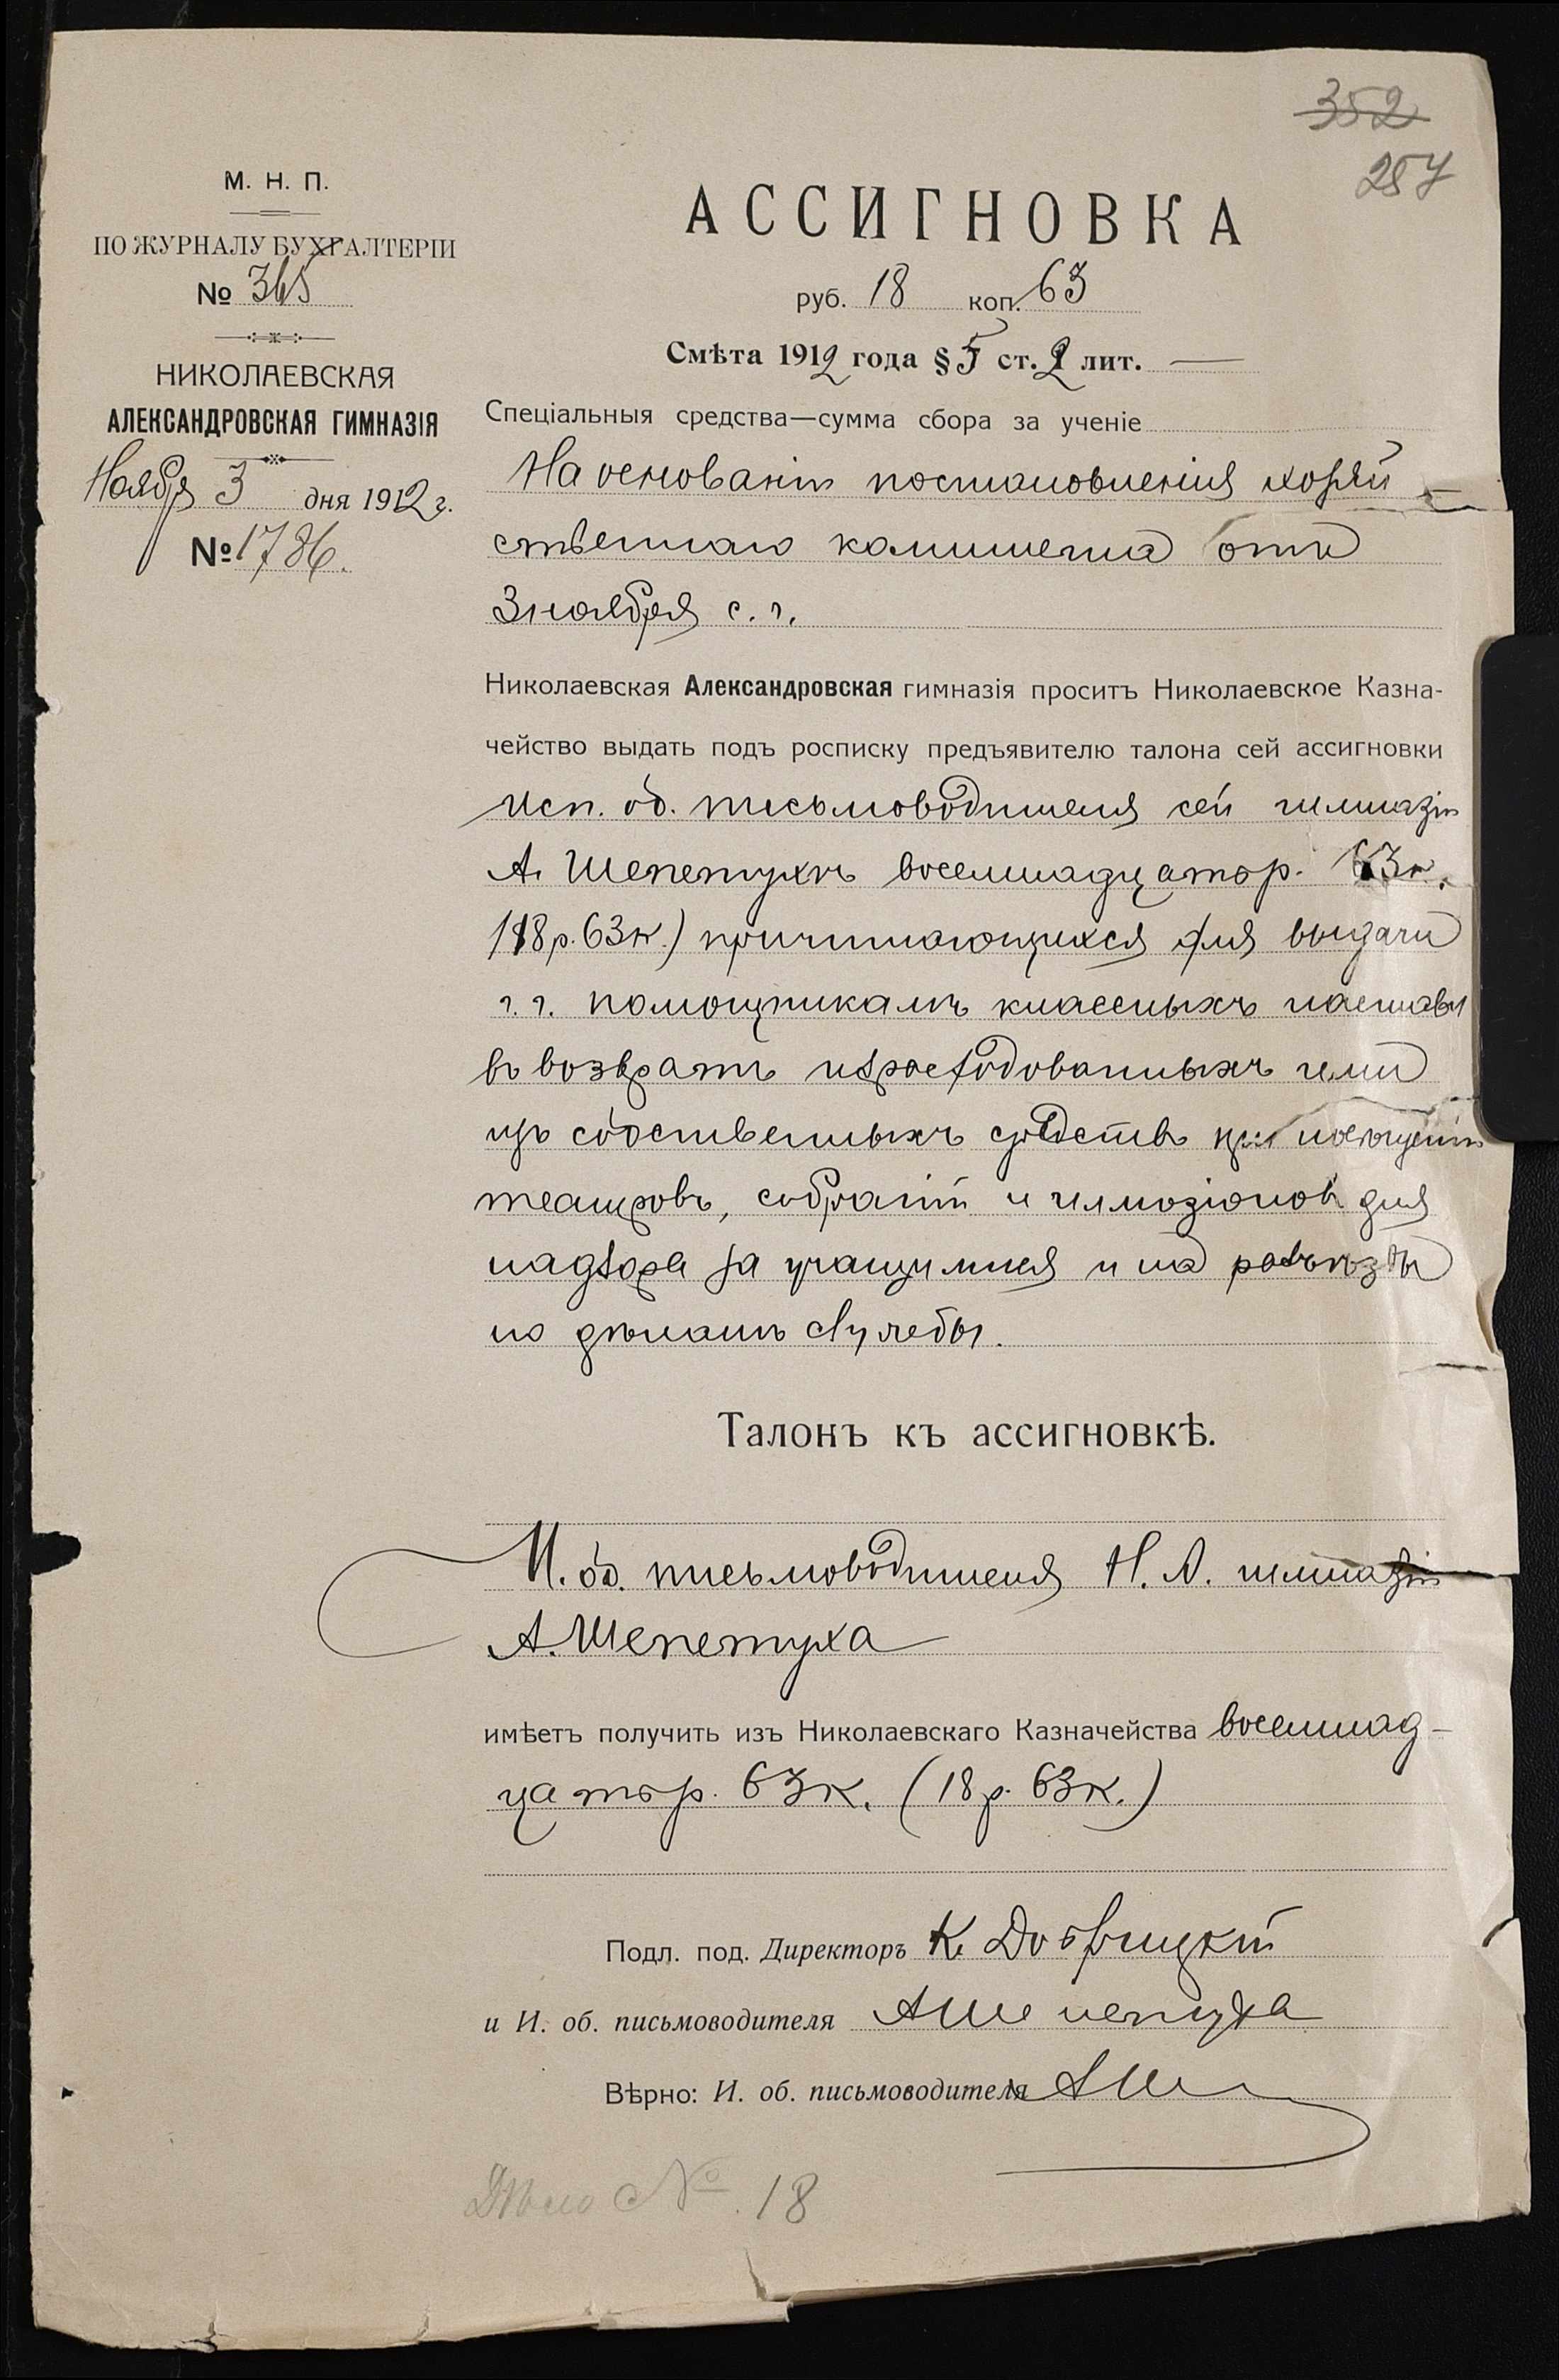 352
257
М. Н. П.
ПО ЖУРНАЛУ БУХГАЛТЕРІИ
№ 365
НИКОЛАЕВСКАЯ
АЛЕКСАНДРОВСКАЯ ГИМНАЗІЯ
Ноября 3 дня 1912 г.
№ 1786.
АССИГНОВКА
руб. 18 коп. 63
Смѣта 1912 года § 5 ст. 2 лит. —
Спеціальныя средства—сумма сбора за ученіе
На основаніи постановленія хозяй-
ственнаго комитета отъ
3 ноября с. г.
Николаевская Александровская гимназія проситъ Николаевское Казна-
чейство выдать подъ росписку предъявителю талона сей ассигновки
Исп. об. письмоводителя сей гимназіи
А. Шепетухѣ восемнадцать р. 63 к.
(18 р. 63 к.) причитающихся для выдачи
г. г. помощникамъ классныхъ наставн
въ возвратъ израсходованныхъ ими
изъ собственныхъ средствъ при посѣщеніи
театровъ, собраній и иллюзіоновъ для
надзора за учащимися и на разъѣзды
по дѣламъ службы.
Талонъ къ ассигновкѣ.
И. об. письмоводителя Н. А. гимназіи
А. Шепетуха
имѣетъ получить изъ Николаевскаго Казначейства восемнад-
цать р. 63 к. (18 р. 63 к.)
Подл. под. Директоръ К.
и И. об. письмоводителя А Шепетуха
Вѣрно: И. об. письмоводителя АШ
Дѣло № 18